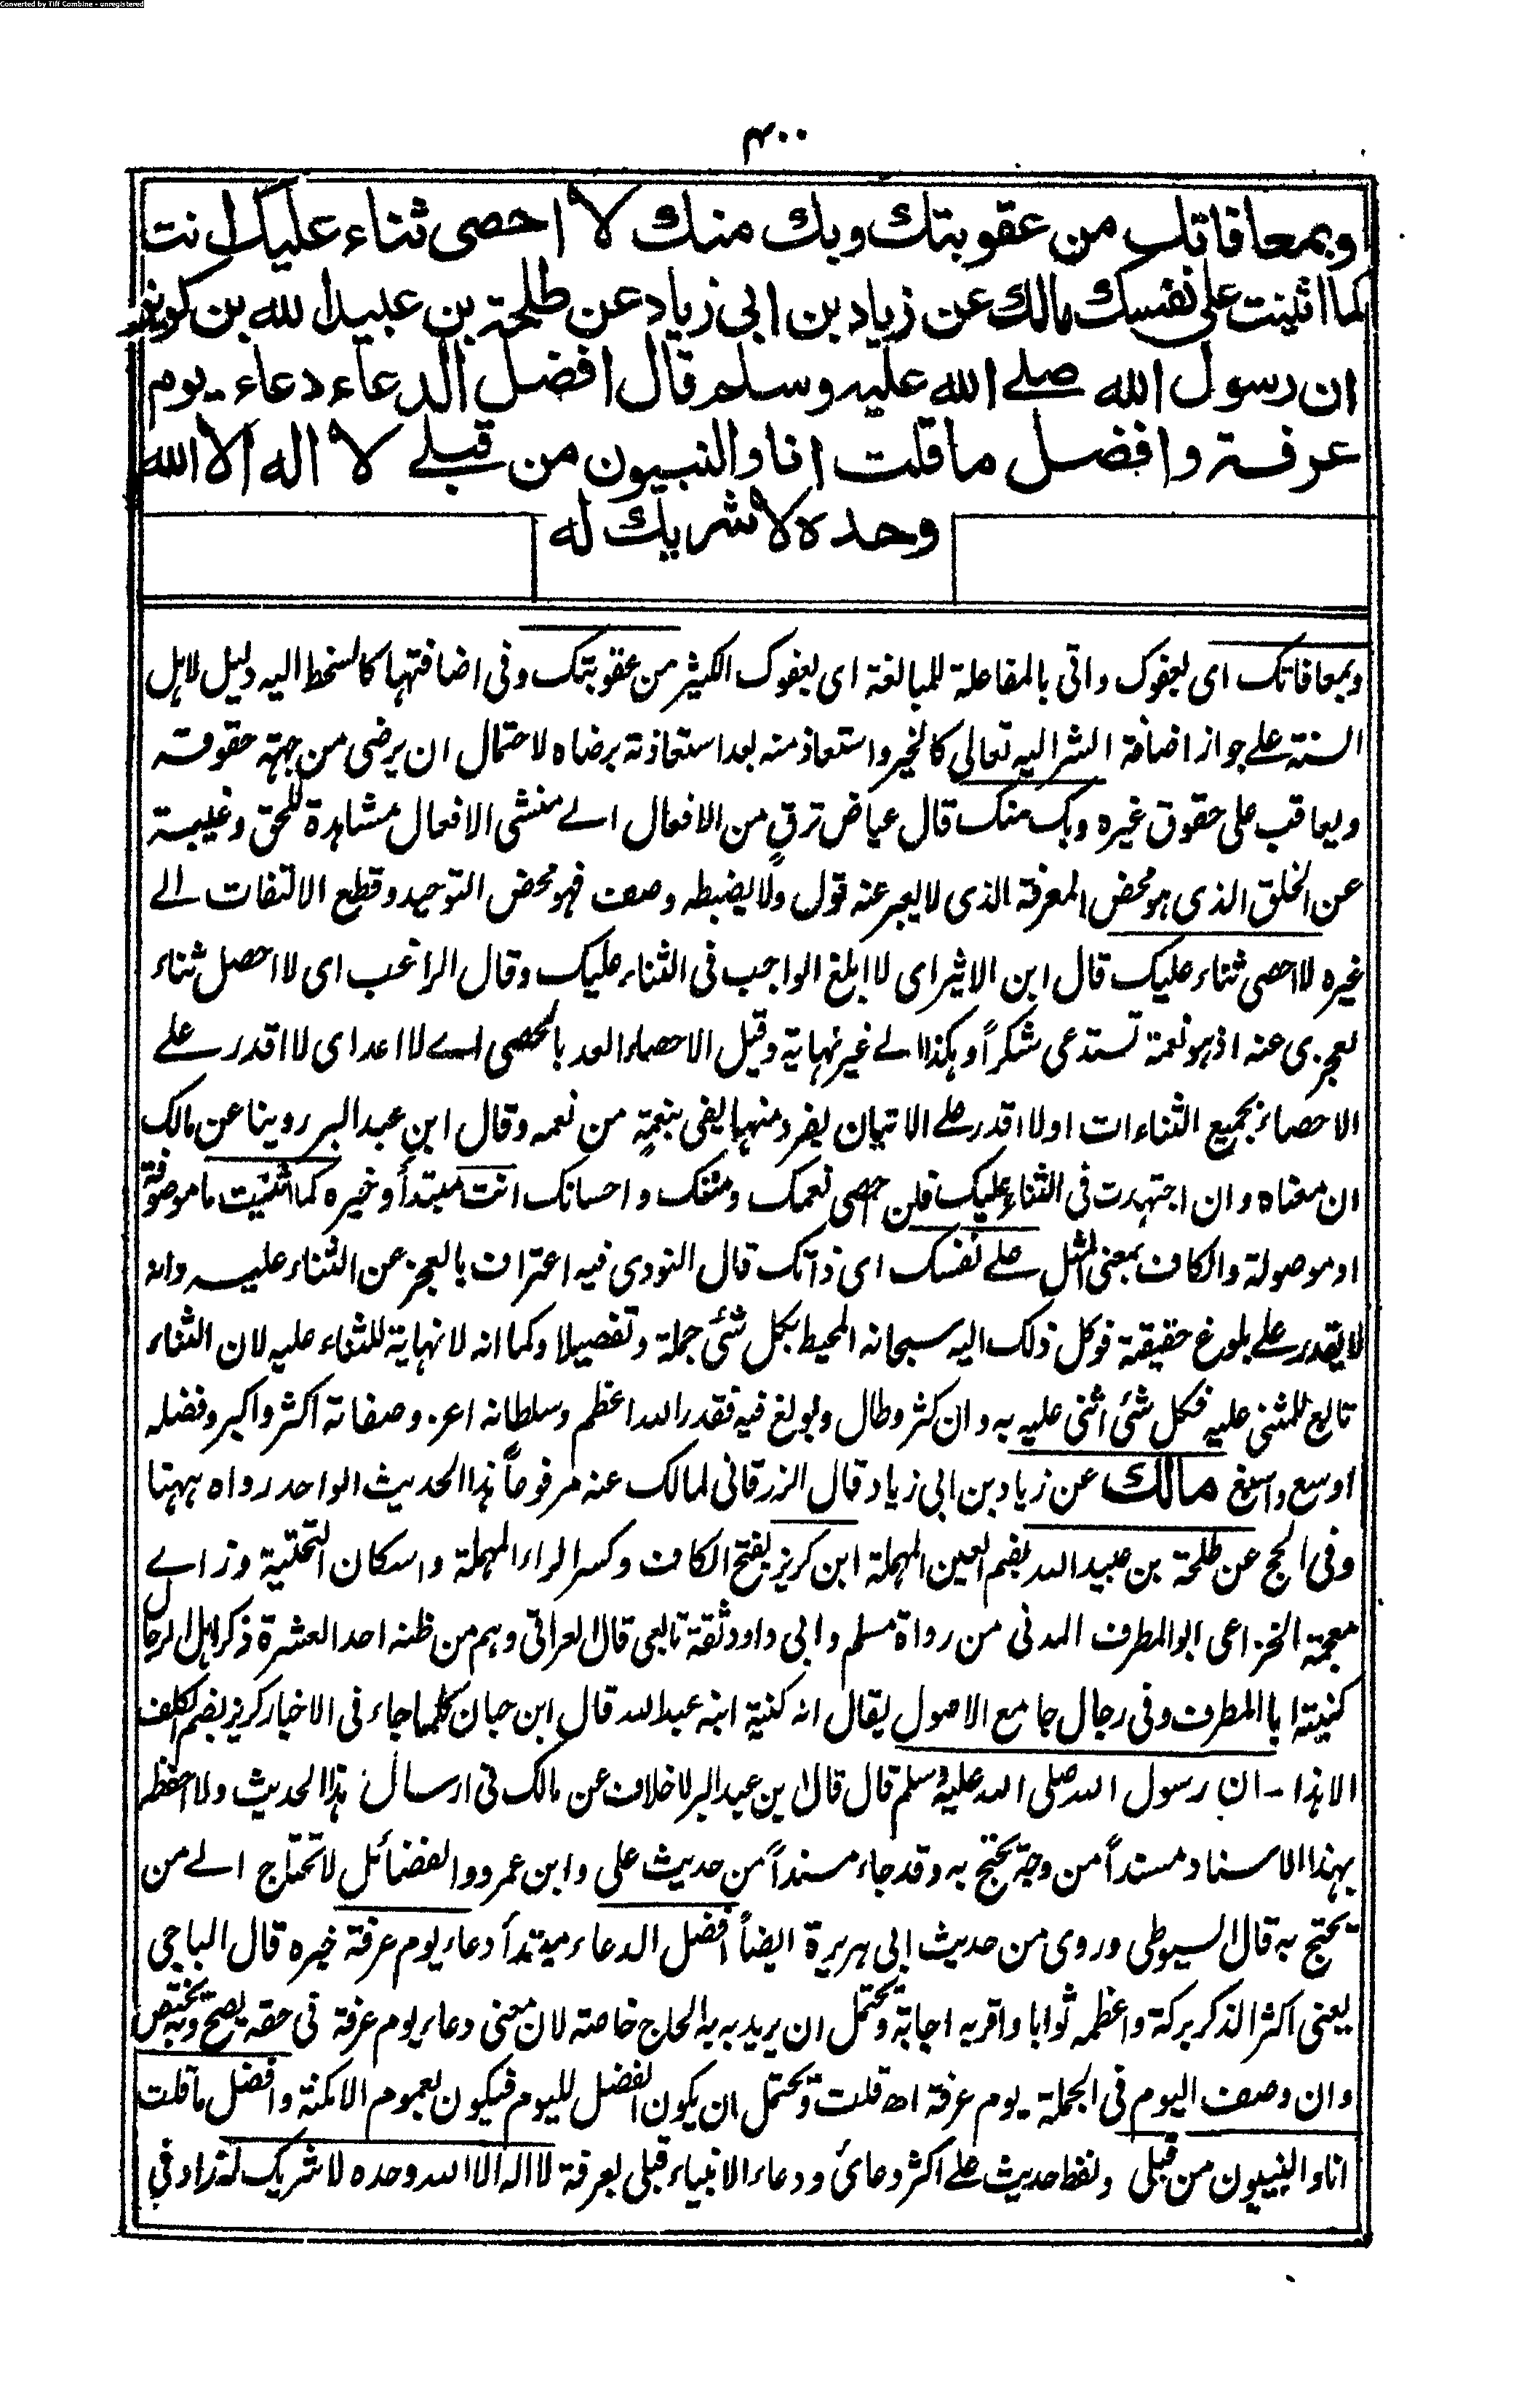 Converted by Tiff Combine - unregistered
۴۰۰
وبمعافاتك من عقوبتك وبك منك لا احصى ثناء عليك انت
كما اثنيت على نفسك مالك عن زياد بن ابى زياد عن طلحة بن عبيد الله بن كريز
ان رسول الله صلے الله عليه وسلم قال افضل الدعاء دعاء يوم
عرفة وافضل ما قلت انا والنبيون من قبلے لا اله الا الله
وحده لا شريك له
وبمعافاتك اى بعفوك واتى بالمفاعلة للمبالغة اى بعفوك الكثير من عقوبتك وفى اضافتها كالسخط اليه دليل لاهل
السنة علے جواز اضافة الشر اليه تعالى كالخير واستعاذ منه بعد استعاذته برضاه لاحتمال ان يرضى من جهة حقوقه
ويعاقب على حقوق غيره وبك منك قال عياض ترق من الافعال الے منشى الافعال مشاهدة للحق وغيبة
عن الخلق الذى هو محض المعرفة الذى لا يعبر عنه قول ولا يضبطه وصف فهو محض التوحيد وقطع الالتفات الے
غيره لا احصى ثناء عليك قال ابن الاثير اى لا ابلغ الواجب فى الثناء عليك وقال الراغب اى لا احصل ثناء
لعجزى عنه اذ هو نعمة تستدعى شكراً وهكذا الے غير نهاية وقيل الاحصاء العد بالحصى اے لا اعد اى لا اقدر علے
الاحصاء بجميع الثناءات او لا اقدر علے الاتيان بفرد منها يفى بنعمة من نعمه وقال ابن عبد البر روينا عن مالك
ان معناه وان اجتهدت فى الثناء عليك فلن احصى نعمك ومننك واحسانك انت مبتدأ وخبره كما اثنيت ما موصوفة
او موصولة والكاف بمعنى المثل علے نفسك اى ذاتك قال النووى فيه اعتراف بالعجز عن الثناء عليه وانه
لا يقدر علے بلوغ حقيقة فوكل ذلك اليه سبحانه المحيط بكل شئ جملة وتفصيلا وكما انه لا نهاية للثناء عليه لان الثناء
تابع للمثنى عليه فكل شئ اثنى عليه به وان كثر وطال وبولغ فيه فقدر الله اعظم وسلطانه اعز وصفاته اكثر واكبر وفضله
اوسع واسبغ مالك عن زياد بن ابى زياد قال الزرقانى لمالك عنه مرفوعاً هذا الحديث الواحد رواه ههنا
وفى الحج عن طلحة بن عبيد الله بضم العين المهملة ابن كريز بفتح الكاف وكسر الراء المهملة واسكان التحتية وزاے
معجمة الخزاعى ابو المطرف المدنى من رواة مسلم وابى داود ثقة تابعى قال العراقى وهم من ظنه احد العشرة ذكر اهل الرجال
كنيته ابا المطرف وفى رجال جامع الاصول يقال انه كنية ابنه عبد الله قال ابن حبان كلما جاء فى الاخبار كريز بضم الكاف
الا هذا - ان رسول الله صلى الله عليه وسلم قال قال ابن عبد البر لا خلاف عن مالك فى ارسال هذا الحديث ولا احفظه
بهذا الاسناد مسنداً من وجه يحتج به وقد جاء مسنداً من حديث على وابن عمرو والفضائل لا تحتاج الے من
يحتج به قال السيوطى وروى من حديث ابى هريرة ايضاً افضل الدعاء مبتدأ دعاء يوم عرفة خبره قال الباجى
يعنى اكثر الذكر بركة واعظمه ثوابا واقربه اجابة ويحتمل ان يريد به الحاج خاصة لان معنى دعاء يوم عرفة فى حقه يصح وبه يختص
وان وصف اليوم فى الجملة يوم عرفة اھ قلت ويحتمل ان يكون الفضل لليوم فيكون بعموم الامكنة وافضل ما قلت
انا والنبيون من قبلى ولفظ حديث علے اكثر دعائى ودعاء الانبياء قبلى بعرفة لا اله الا الله وحده لا شريك له زاد فى